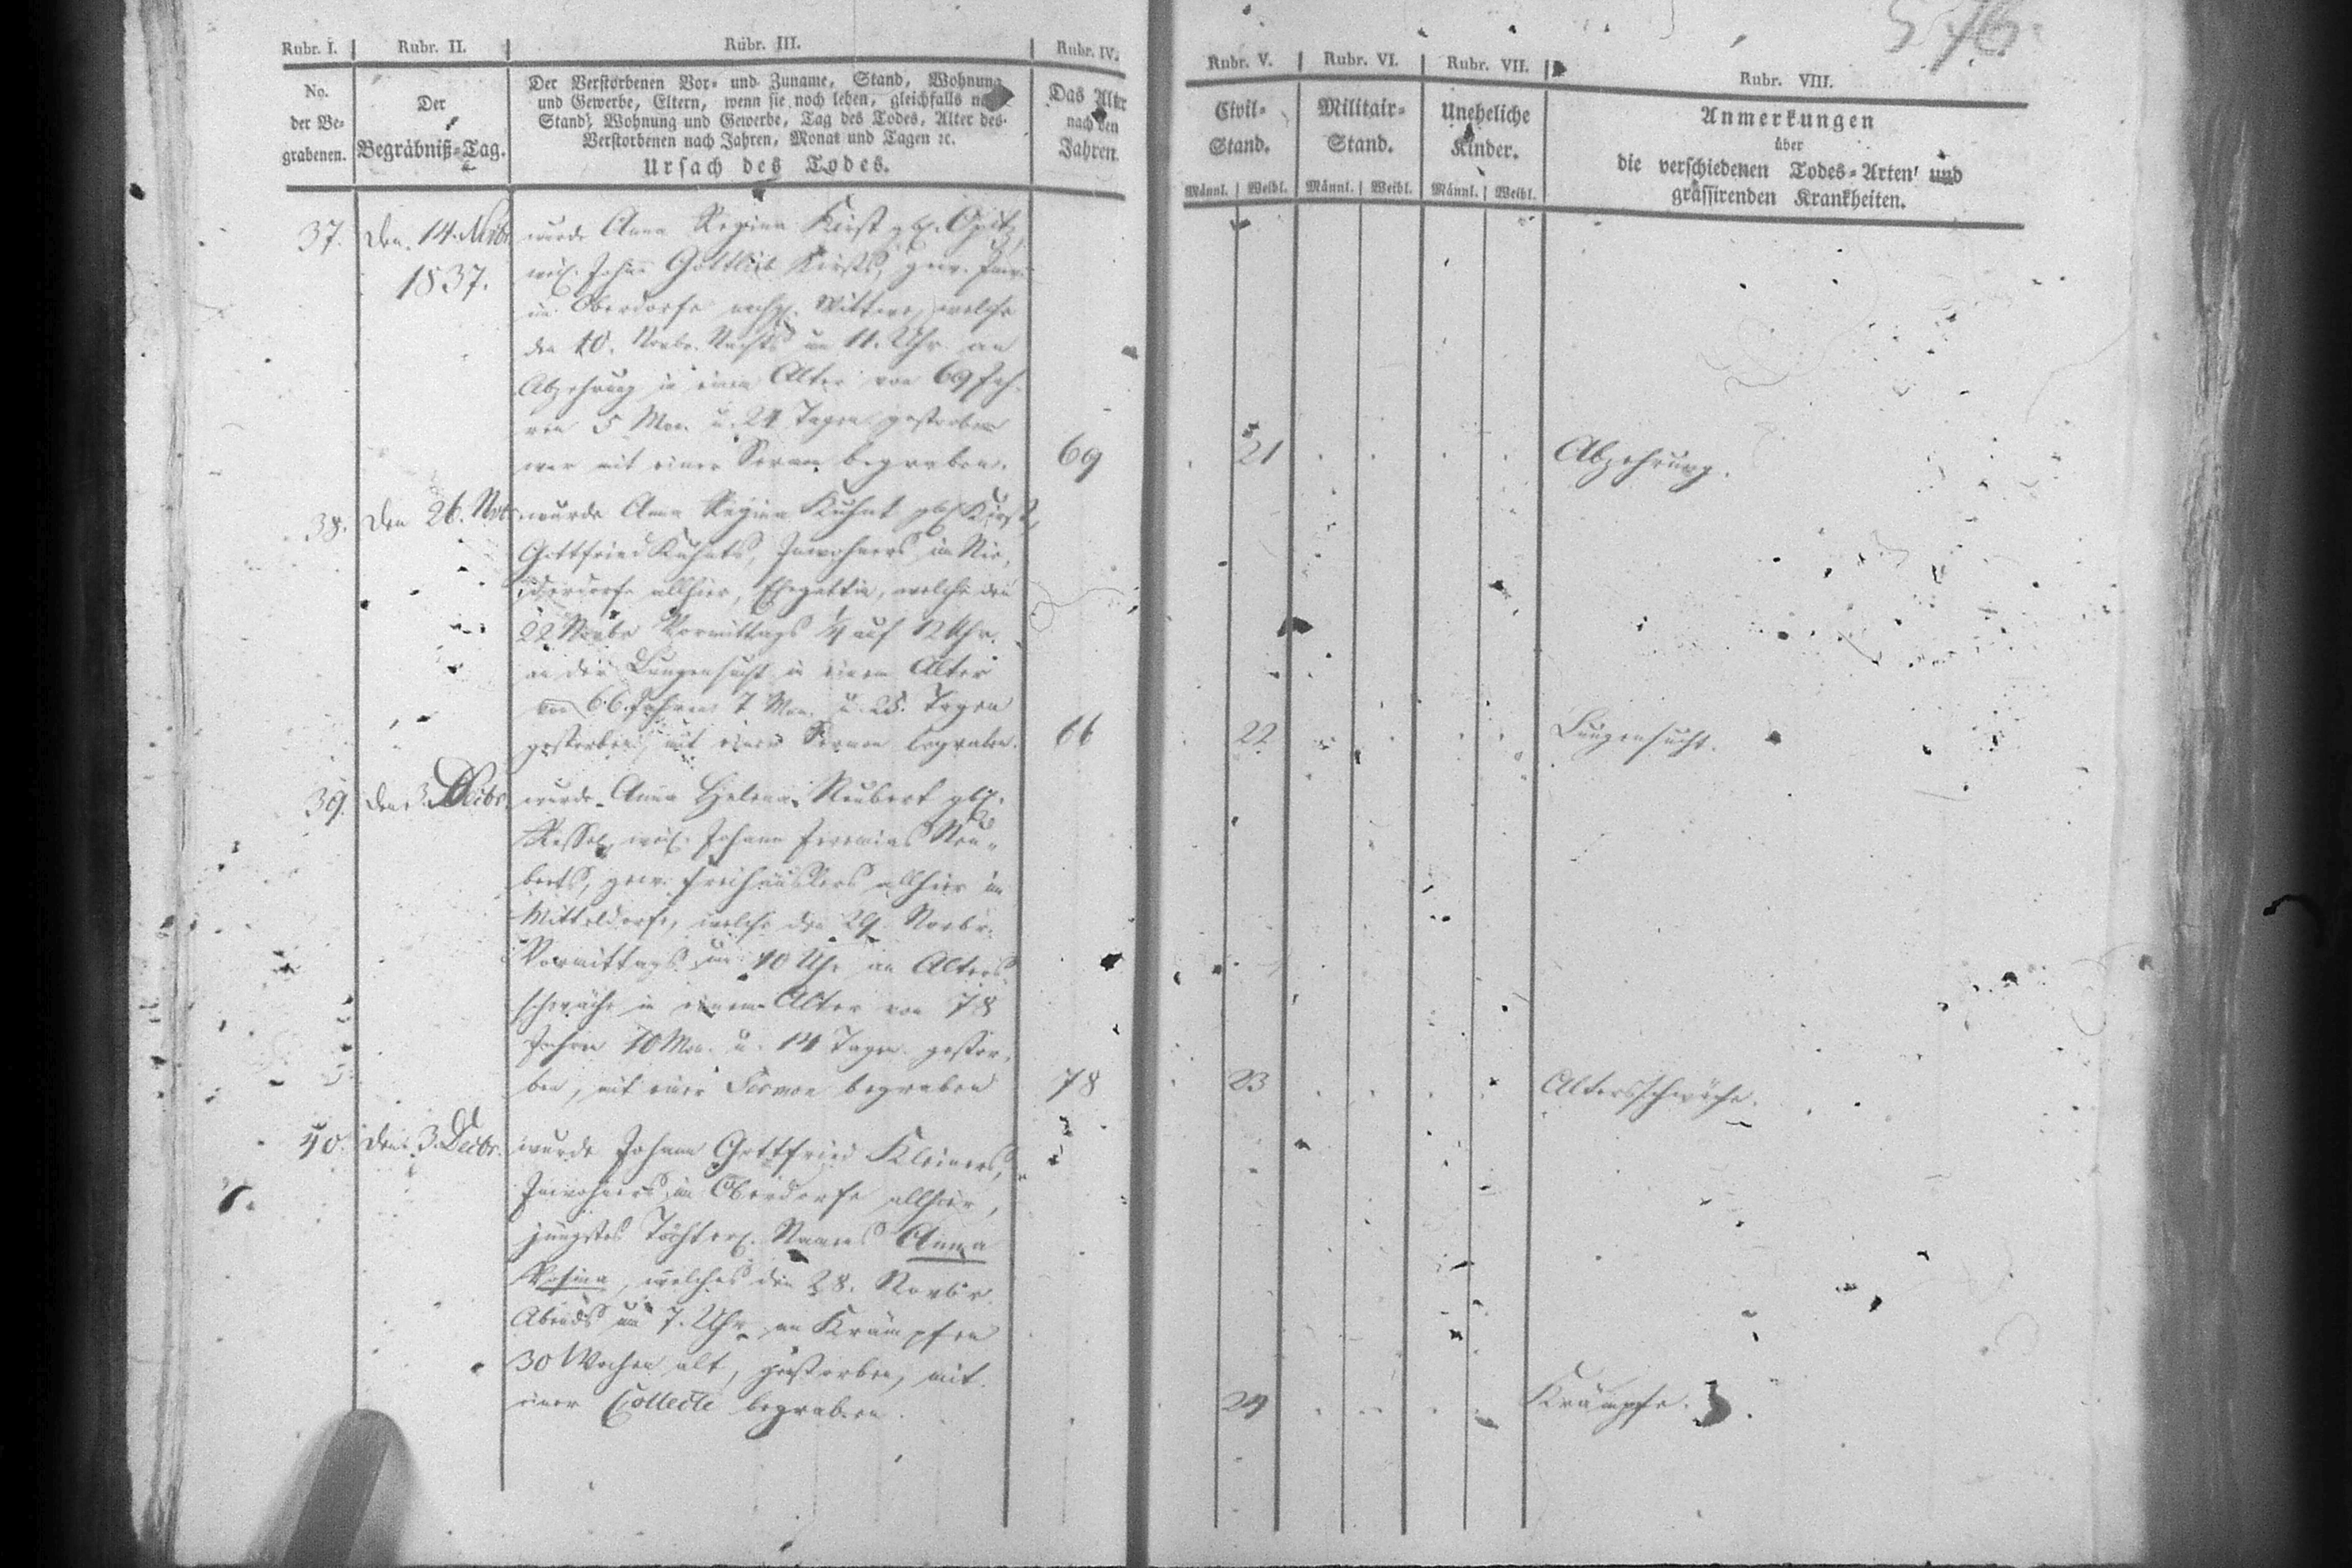 576.
Rubr. I. Rubr. II. Rubr. III. Rubr. IV. Rubr. V. Rubr. VI. Rubr. VII. Rubr. VIII.
No. der Be-grabenen.
Der Begräbniß-Tag.
Der Verstorbenen Vor- und Zuname, Stand, Wohnung
und Gewerbe, Eltern, wenn sie noch leben, gleichfalls nach
Stand, Wohnung und Gewerbe, Tag des Todes, Alter des
Verstorbenen nach Jahren, Monat und Tagen ꝛc.
Ursach des Todes.
Das Alter
nach den
Jahren.
Civil-Stand.
Militair-Stand.
Uneheliche Kinder.
Männl. Weibl. Männl. Weibl. Männl. Weibl.
Anmerkungen
über
die verschiedenen Todes-Arten und
grassirenden Krankheiten.
37. den 14. Novbr. wurde Anna Regina Kirst gb. Opitz,
1837. weil. Johann Gottlieb Kirsts, gew. Inw.
im Oberdorfe Wittwe, welche
den 10. Novbr. Nachts um 11. Uhr an
Abzehrung in einem Alter von 69 Jah-
ren 5 Mon. u. 24 Tagen gestorben
war mit einer Sermon begraben. 69 21 Abzehrung.
38. den 26. Nov. wurde Anna Regina Kuhnt gb. Kirst,
Gottfried Kuhnts, Inwohners im Nie-
derdorfe allhier, Ehegattin, welche den
22 Novbr Vormittags ¼ auf 12 Uhr
an der Lungensucht in einem Alter
von 66 Jahren 7 Mon. u. Tagen
gestorben, mit einer Sermon begraben. 66 22 Lungensucht.
39. den 3. Decbr. wurde Anna Helena Neubert gb.
weil. Johann Jeremias Neu-
berts, gew. Freihäuslers allhier im
Mitteldorfe, welche den 29. Novbr.
Vormittags um 10 Uhr an Alters
schwäche in einem Alter von 78
Jahren 10 Mon. u. 14 Tagen gestor-
ben, mit einer Sermon begraben 78 23 Altersschwäche.
40. den 3. Decbr. wurde Johann Gottfried Kleiners,
Inwohners im Oberdorfe allhier,
jüngstes Töchterl. Namens Anna
Rosina, welches den 28. Novbr.
Abends um 7. Uhr an Krämpfen
30 Wochen alt, gestorben, mit
einer Collecte begraben. 24 Krämpfe.